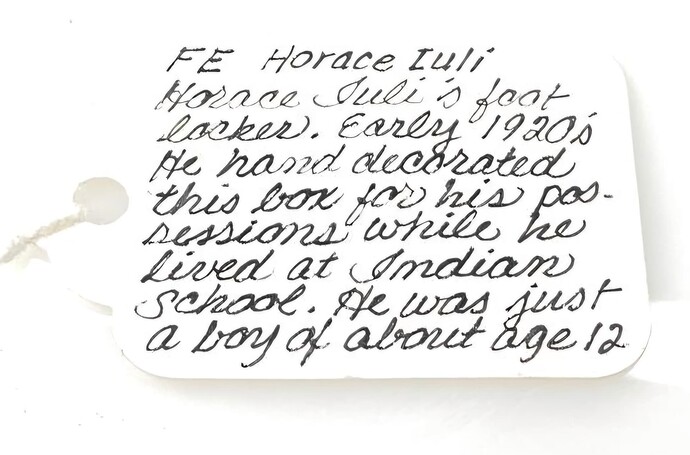 FE Horace Iuli
Horace Iuli's foot
locker. Early 1920's
He hand decorated
this box for his pos-
sessions while he
lived at Indian
School. He was just
a boy of about age 12